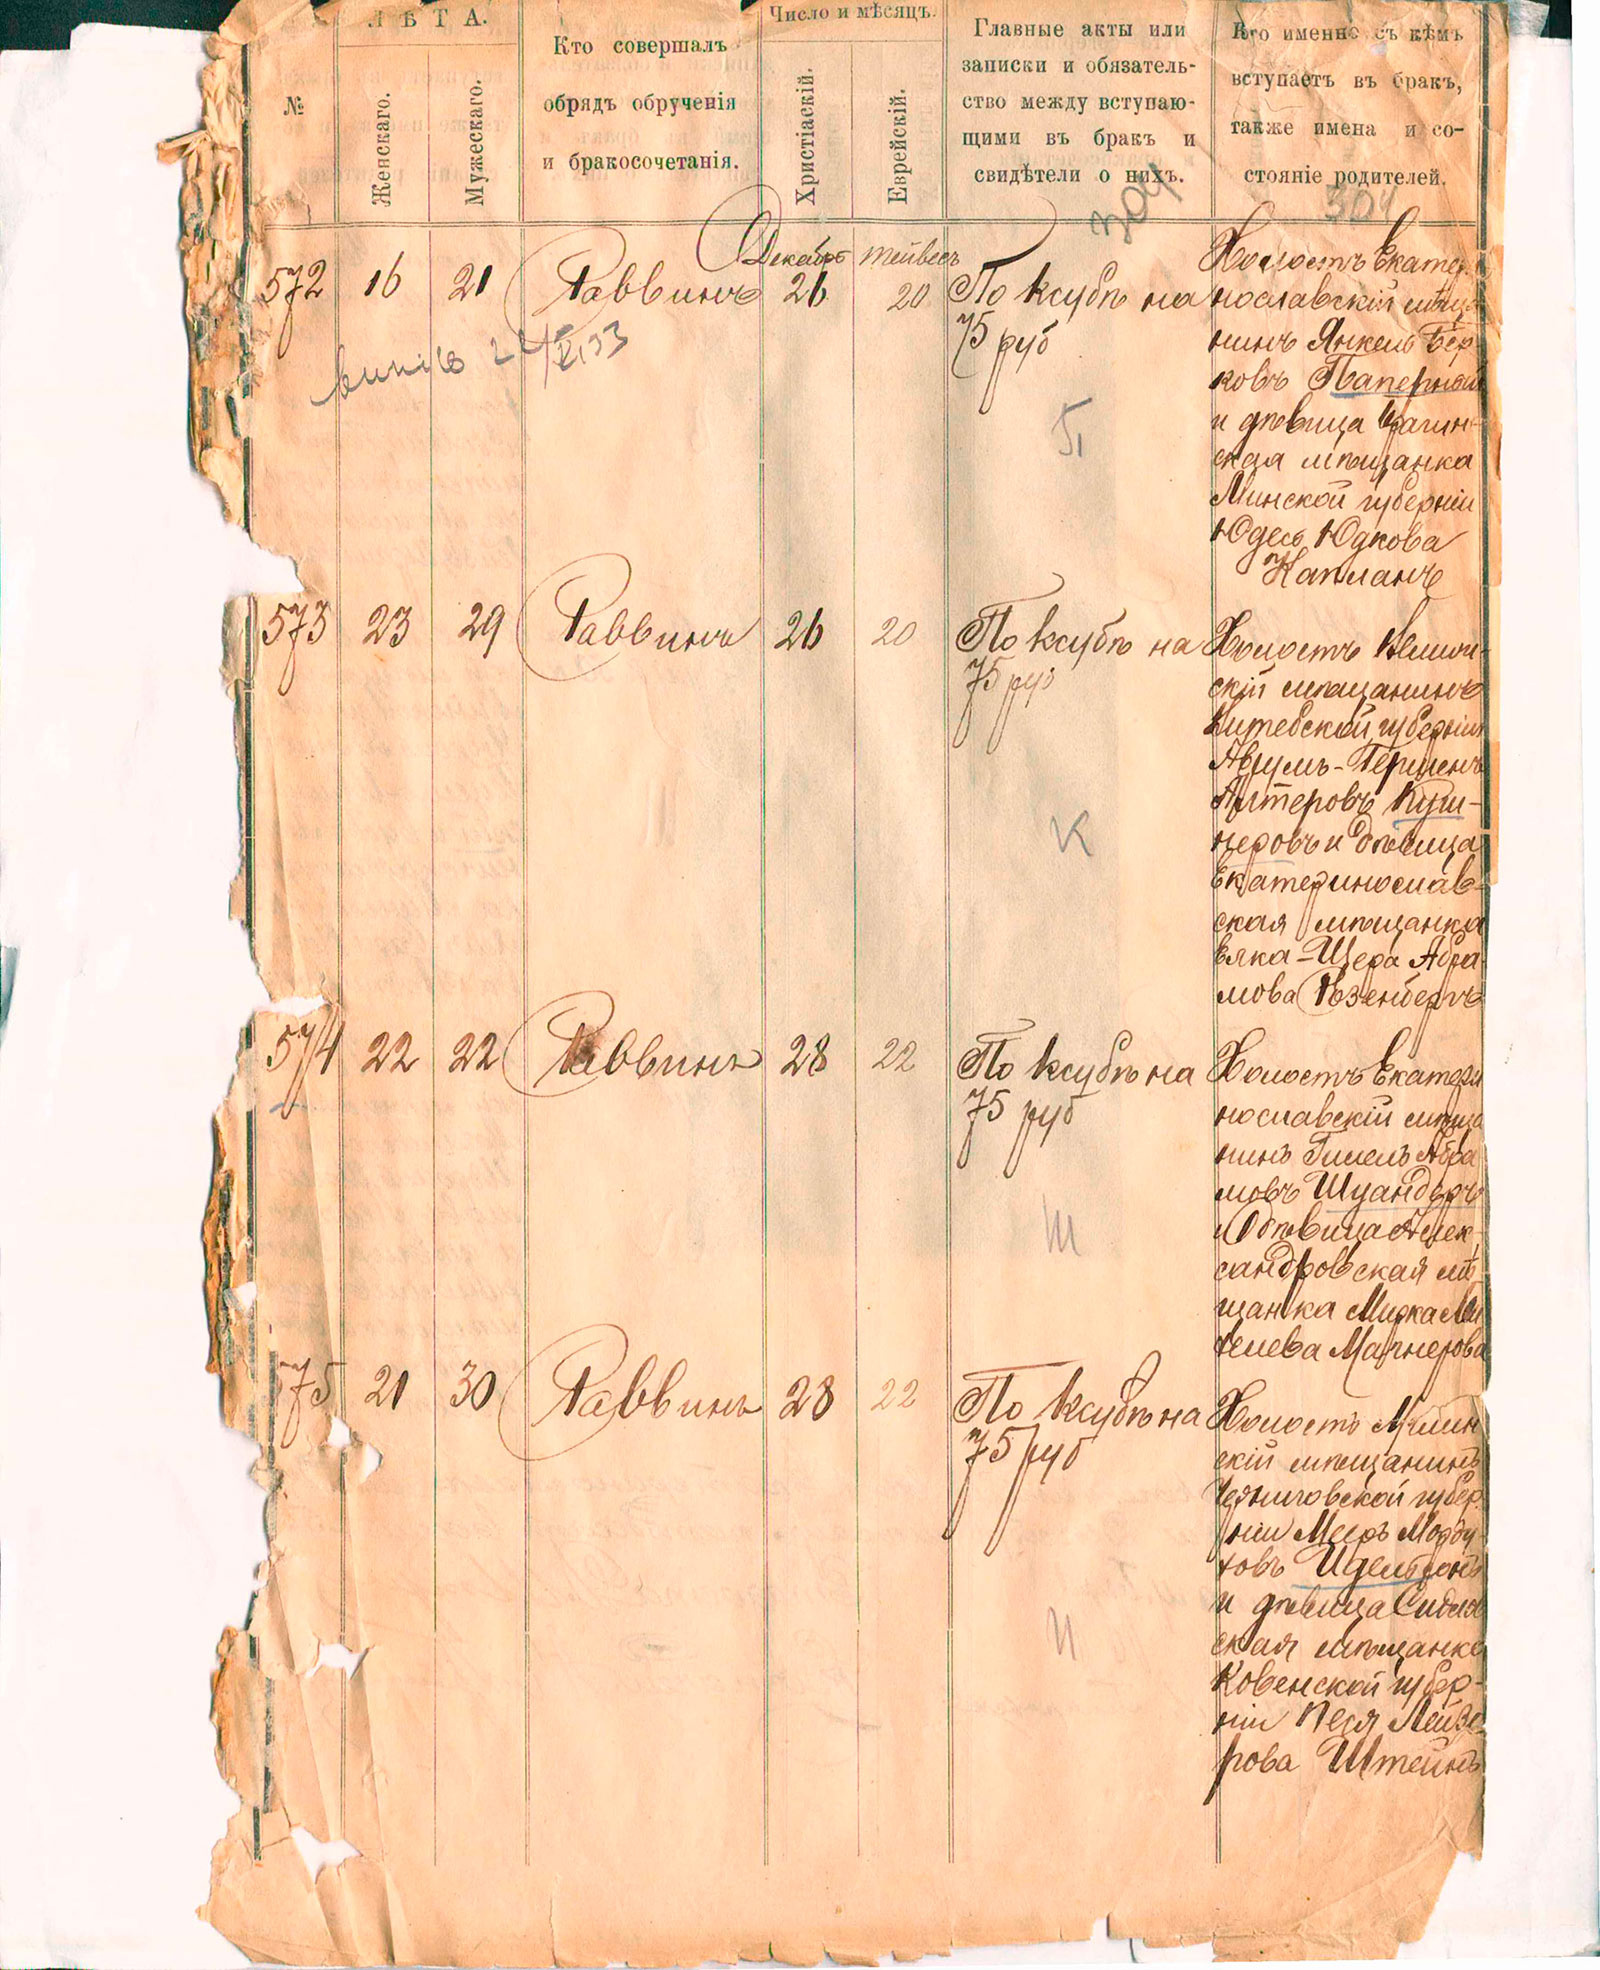 №
ЛѢТА.
Женскаго.
Мужескаго.
Кто совершалъ
обрядъ обрученія
и бракосочетанія.
Число и мѣсяцъ.
Христіаскій.
Еврейскій.
Главные акты или
записки и обязатель-
ство между вступаю-
щими въ бракъ и
свидѣтели о нихъ.
Кто именно съ кѣмъ
вступаетъ въ бракъ,
также имена и со-
стояніе родителей.
304
304
Декабрь Тейвесъ
572 16 21 Раввинъ 26 20 По ксубѣ на
75 руб
22/XI 33
П
Холостъ Екатери
нославскій мѣща
нинъ Янкель Бер
ковъ Паперный
и дѣвица Брагин-
ская мѣщанка
Минской губерніи
Юдесь Юдкова
Капланъ
573 23 29 Раввинъ 26 20 По ксубѣ на
75 руб
К
Холостъ
скій мѣщанинъ
Витебской губерніи
Аврумъ-Гершенъ
Алтеровъ Куш-
неровъ и дѣвица
Екатеринослав-
ская мѣщанка
Абра
мова
574 22 22 Раввинъ 28 22 По ксубѣ на
75 руб
Ш
Холостъ Екатери
нославскій мѣща
нинъ Гилель Абра
мовъ
и дѣвица Алек-
сандровская мѣ
щанка Мирка Ми
хелева
575 21 30 Раввинъ 28 22 По ксубѣ на
75 руб
И
Холостъ Мглин
скій мѣщанинъ
Черниговской губер
ніи Мееръ Морду
ховъ Идельсонъ
и дѣвица
ская мѣщанка
Ковенской губер-
ніи Песя Лейзе
рова Штейнъ